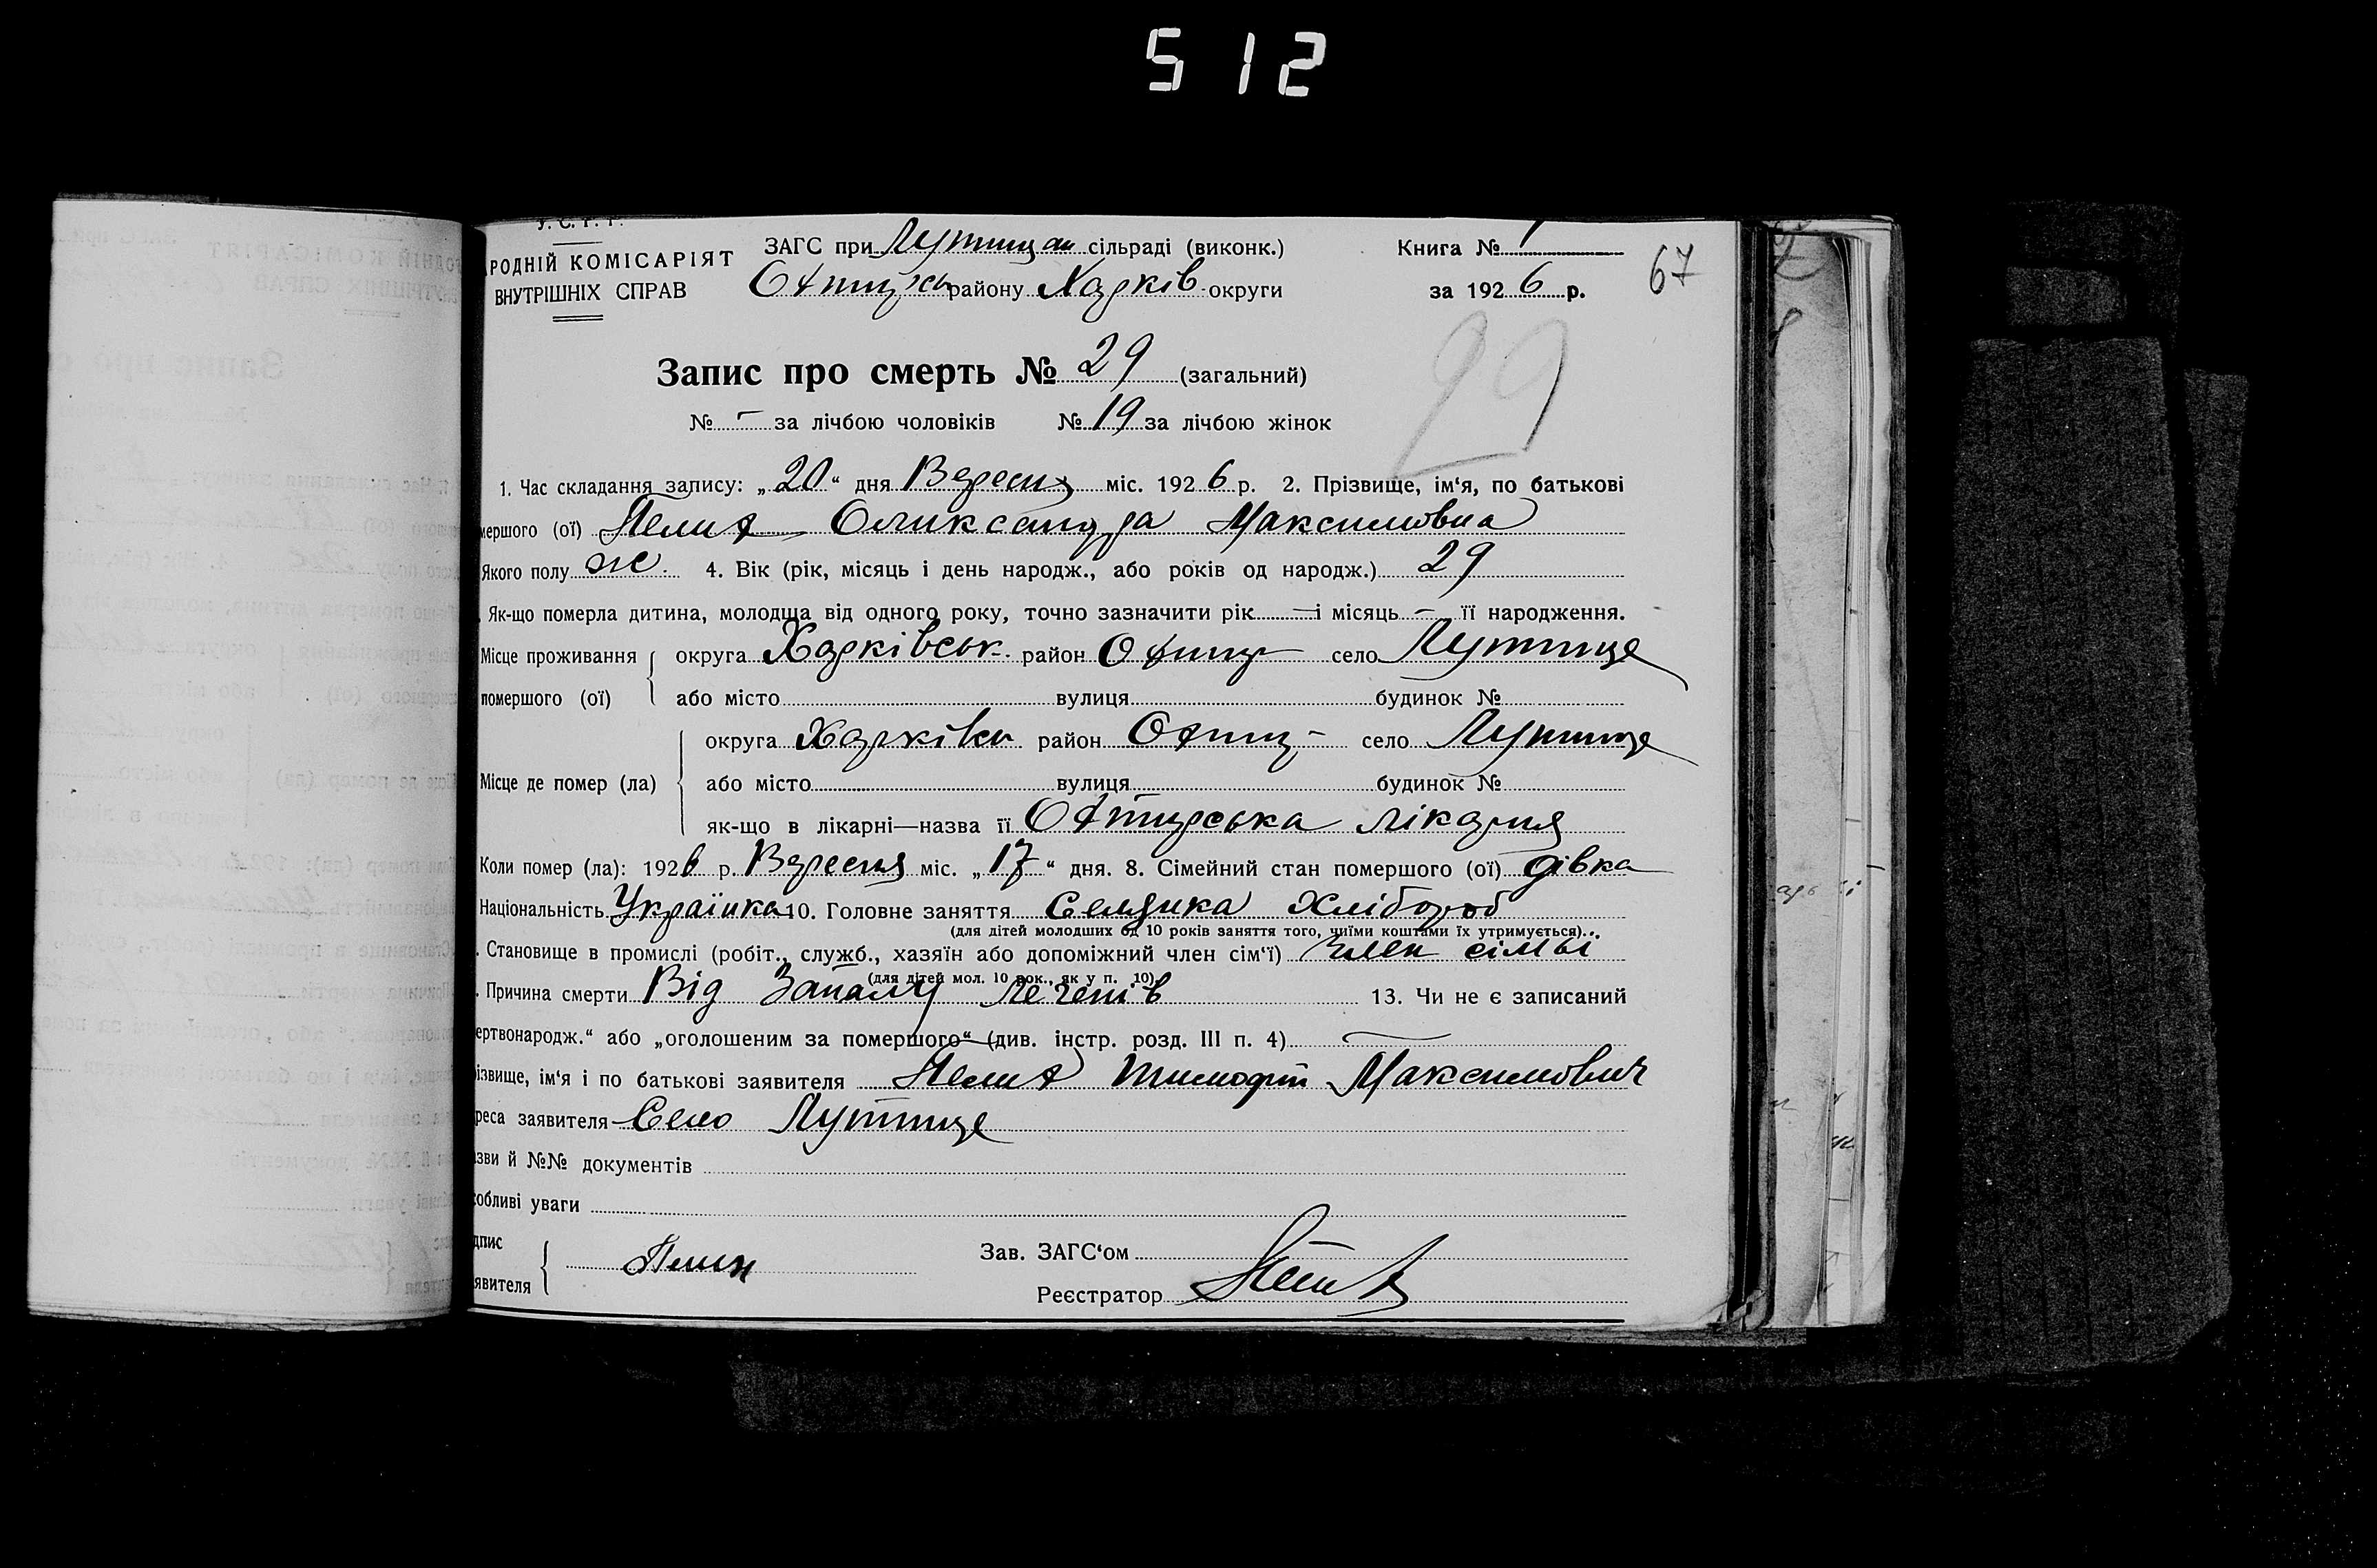 512
У. С. Р. Р.
РОДНІЙ КОМІСАРІЯТ
ВНУТРІШНІХ СПРАВ
ЗАГС при сільраді (виконк.)
району Харків округи
Книга № 1
за 1926 р.
67
Запис про смерть № 29 (загальний)
29
№ - за лічбою чоловіків № 19 за лічбою жінок
1. Час складання запису: „20“ дня Вересня міс. 1926 р. 2. Прізвище, ім‘я, по батькові
мершого (ої) Олександра Максимовна
Якого полу ж. 4. Вік (рік, місяць і день народж., або років од народж.) 29
Як-що померла дитина, молодща від одного року, точно зазначити рік — і місяць — її народження.
Місце проживання округа Харківськ. район Охтир село Лутище
помершого (ої) або місто вулиця будинок №
округа Харківськ район Охтир- село Лутище
Місце де помер (ла) або місто вулиця будинок №
як-що в лікарні—назва її Охтирська лікарня
Коли помер (ла): 1926 р. Вересня міс. „17“ дня. 8. Сімейний стан помершого (ої) дівка
Національність Українка 10. Головне заняття Селянка Хлібороб
(для дітей молодших од 10 років заняття того, чиїми коштами їх утримується).
. Становище в промислі (робіт., служб., хазяїн або допоміжний член сім‘ї) член сімьі
(для дітей мол. 10 рок., як у п. 10)
. Причина смерти Від Запалу 13. Чи не є записаний
ертвонародж.“ або „оголошеним за помершого“ (див. інстр. розд. III п. 4) —
ізвище, ім‘я і по батькові заявителя Максимович
реса заявителя Село Лутище
зви й №№ документів
собливі уваги
дпис
явителя
Зав. ЗАГС‘ом
Реєстратор